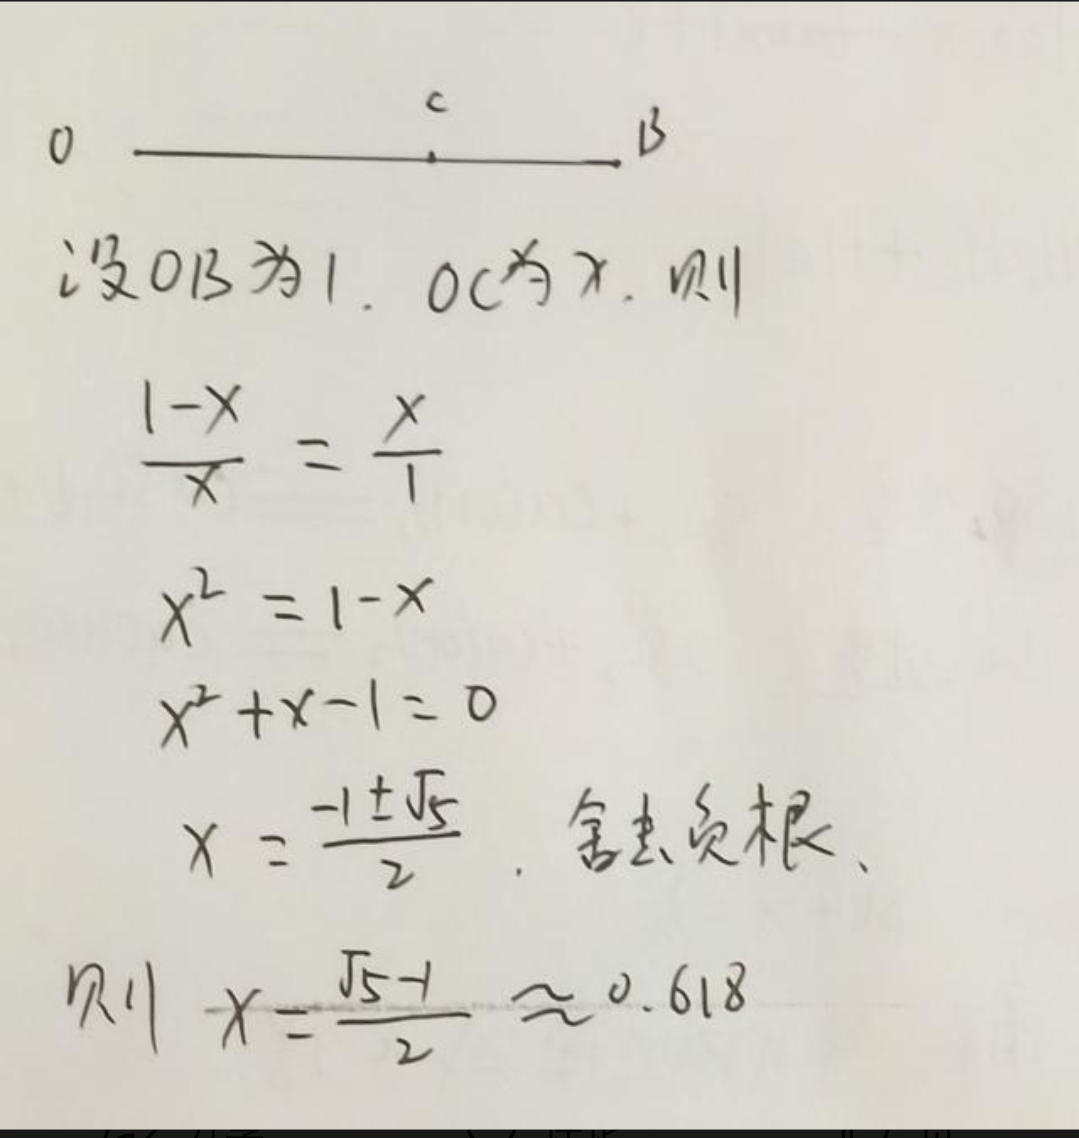 C
O B
设OB为1. OC为x. 则
(1-x)/x = x/1
x² = 1-x
x²+x-1=0
x = (-1±√5)/2 . 舍去负根、
则 x = (√5-1)/2 ≈ 0.618